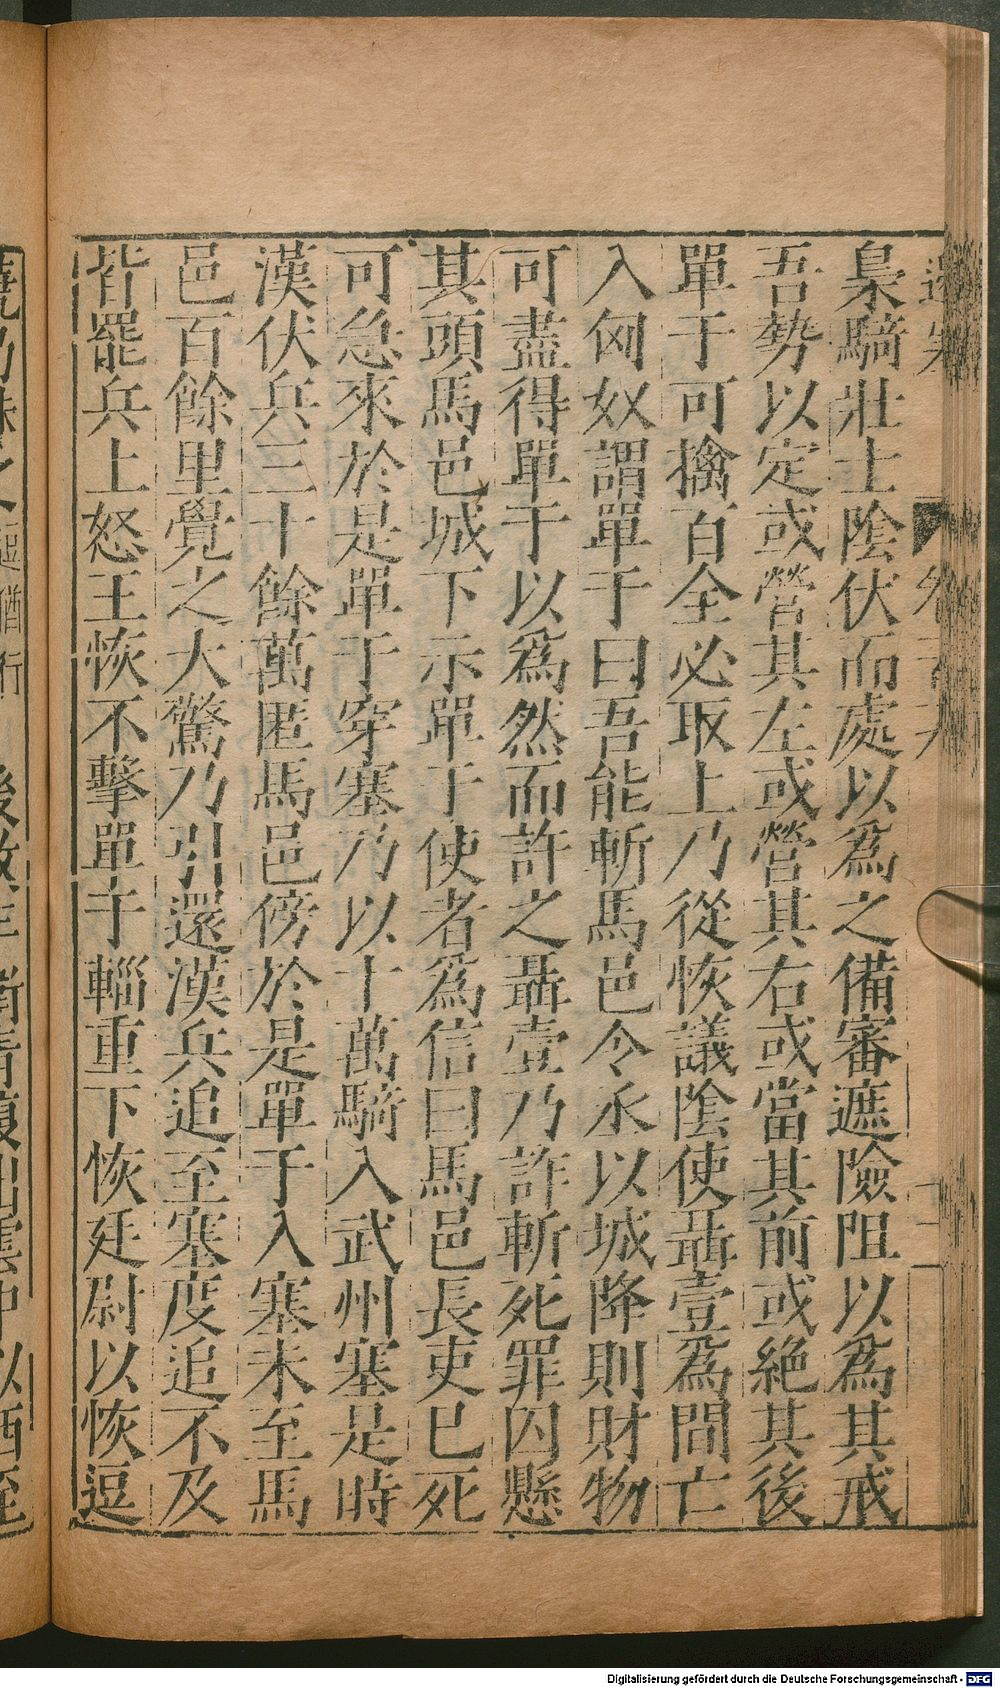 梟騎壯士陰伏而處以爲之備審遮險阻以爲其戒
吾勢以定或營其左或營其右或當其前或絶其後
單于可擒百全必取上乃從恢議陰使聶壹爲間亡
入匈奴謂單于曰吾能斬馬邑令丞以城降則財物
可盡得單于以爲然而許之聶壹乃詐斬死罪囚懸
其頭馬邑城下示單于使者爲信曰馬邑長吏巳死
可急來於是單于穿塞乃以十萬騎入武州塞是時
漢伏兵三十餘萬匿馬邑傍於是單于入塞未至馬
邑百餘里覺之大驚乃引還漢兵追至塞度追不及
皆罷兵上怒王恢不擊單于輜重下恢廷尉以恢逗
後數年衛青復出雲中以西至
Digitalisierung gefördert durch die Deutsche Forschungsgemeinschaft - DFG